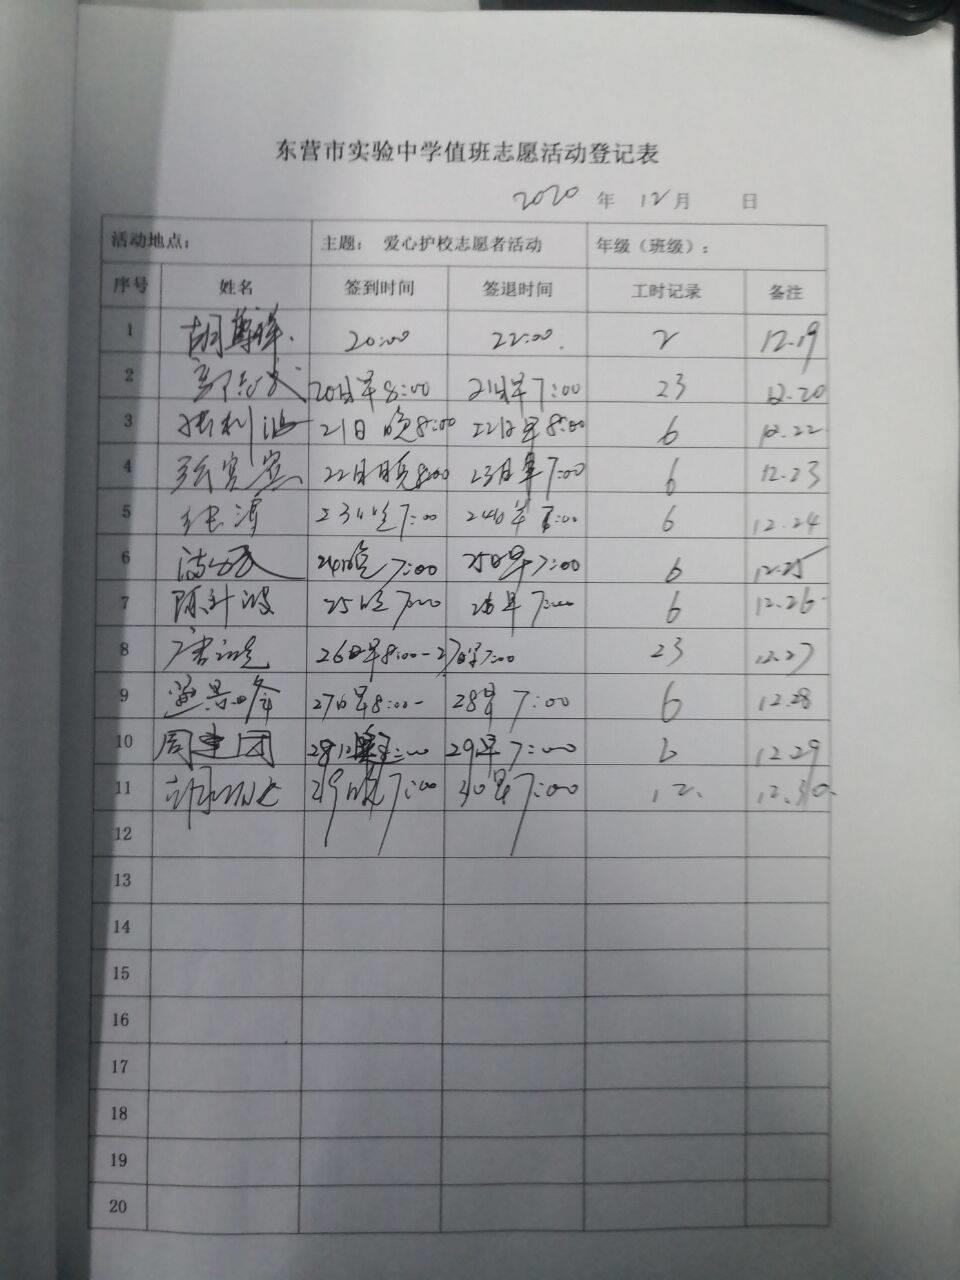 东营市实验中学值班志愿活动登记表
2020 年 12月 日
活动地点： 主题： 爱心护校志愿者活动 年级（班级）：
序号 姓名 签到时间 签退时间 工时记录 备注
1 20:00 22:00. 2 12.19
2 20日早8:00 21日早7:00 23 12.20
3 张利 21日晚8:00 22日早8:00 6 12.22
4 22日晚8:00 23日早7:00 6 12.23
5 23日晚7:00 24日早7:00 6 12.24
6 24日晚7:00 25日早7:00 6 12.25
7 陈 25晚7:00 26早7:00 6 12.26
8 唐 26日早8:00-27日早7:00 23 12.27
9 27日早8:00- 28早7:00 6 12.28
10 周建团 28日 8:00 29早7:00 6 12.29
11 29日晚7:00 30早7:00 12. 12.30
12
13
14
15
16
17
18
19
20